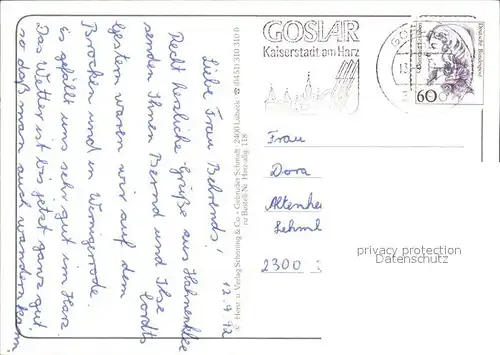 12.9.92
Liebe Frau Behrends!
Recht herzliche Grüße aus Hahnenklee
senden Ihnen Bernd und Ilse Cordts
Gestern waren wir auf dem
Brocken und in Wernigerode.
Es gefällt uns sehr gut im Harz.
Das Wetter ist bis jetzt ganz gut,
so daß man auch wandern kann.
© Herst. u. Verlag Schöning & Co + Gebrüder Schmidt, 2400 Lübeck ☎ 04 51/3 10 31 0
zu Bestell-Nr. Harz-allg. 118
GOSLAR
Kaiserstadt am Harz
Deutsche Bundespost
60
Frau
Dora
Altenhe
Lehml
2300
privacy protection
Datenschutz